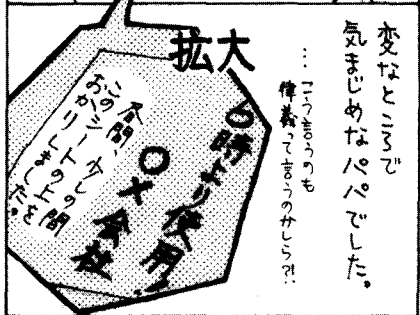 変なところで
気まじめなパパでした。
…こう言うのも
律義って言うのかしら?!
拡大
6時より使用!
〇×会社
昼間、少しの間
このシートの上を
おかりしました。